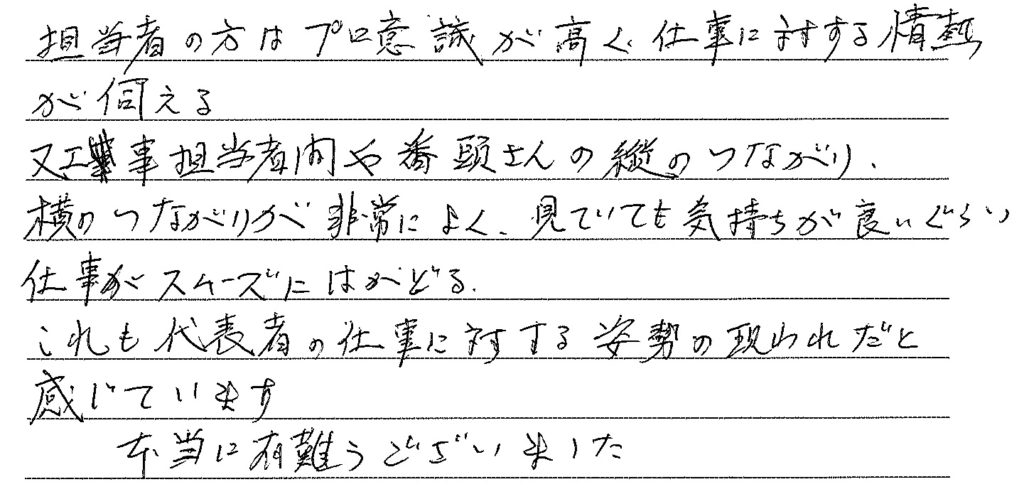 担当者の方はプロ意識が高く、仕事に対する情熱
が伺える
又工事担当者間や番頭さんの縦のつながり、
横のつながりが非常によく、見ていても気持ちが良いぐらい
仕事がスムーズにはかどる。
これも代表者の仕事に対する姿勢の現われだと
感じています
本当に有難うございました